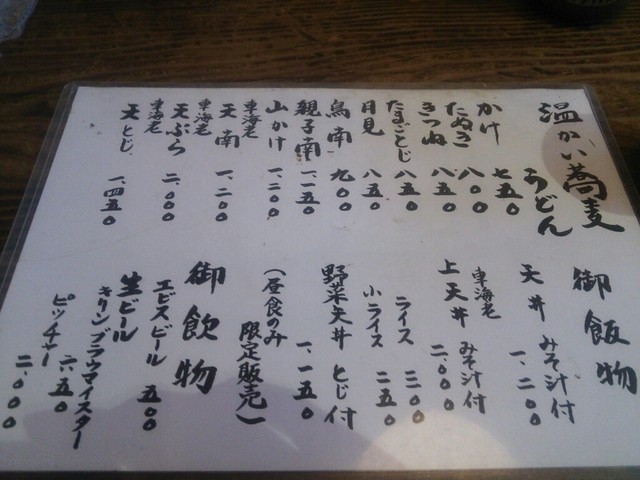 温かい蕎麦
うどん
かけ 七五〇
たぬき 八〇〇
きつね 八五〇
たまごとじ 八五〇
月見 八五〇
鳥南 九〇〇
親子南 一、一五〇
山かけ 一、二〇〇
車海老
天南 一、二〇〇
車海老
天ぷら 二、〇〇〇
車海老
天とじ 一、四五〇
御飯物
天丼 みそ汁付
一、二〇〇
車海老
上天丼 みそ汁付
二、〇〇〇
ライス 三〇〇
小ライス 二五〇
野菜天丼 とじ付
一、一五〇
(昼食のみ
限定販売)
御飲物
エビスビール 五〇〇
生ビール
キリンブラウマイスター
六五〇
ピッチャー
二、〇〇〇